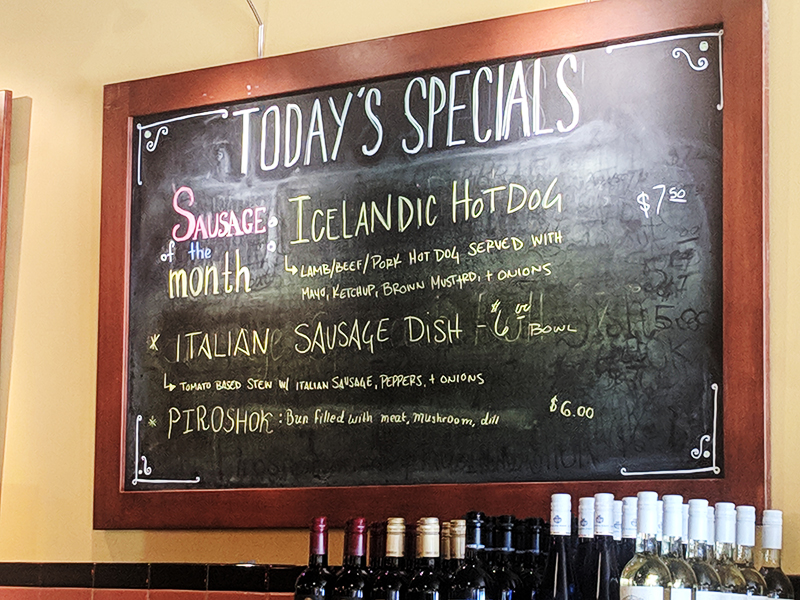 TODAY'S SPECIALS
SAUSAGE of the month : ICELANDIC HOT DOG $7.50
↳ LAMB/BEEF/PORK HOT DOG SERVED WITH
MAYO, KETCHUP, BROWN MUSTARD, + ONIONS
* ITALIAN SAUSAGE DISH - $6.00 BOWL
↳ TOMATO BASED STEW W/ ITALIAN SAUSAGE, PEPPERS, + ONIONS
* PIROSHOK: Bun filled with meat, mushroom, dill $6.00